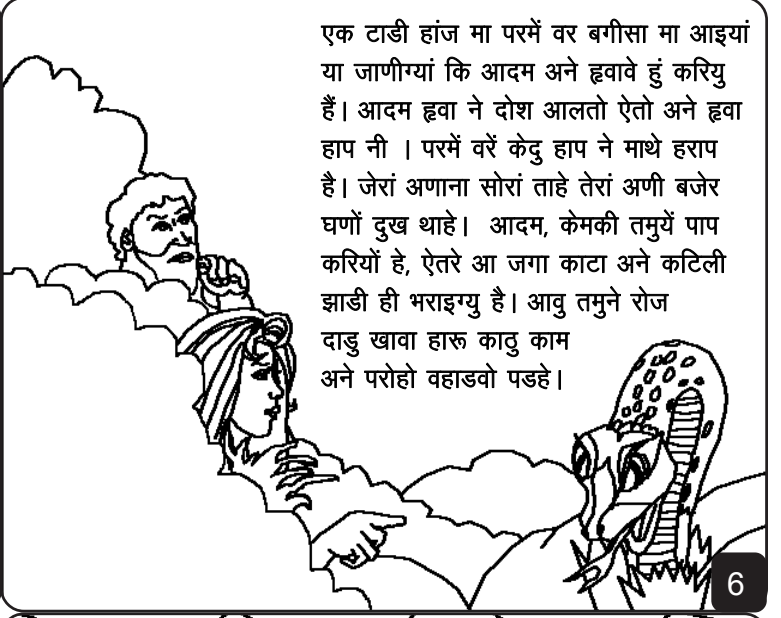 एक टाडी हांज मा परमें वर बगीसा मा आइयां
या जाणीग्यां कि आदम अने हृवावे हुं करियु
हैं। आदम हृवा ने दोश आलतो ऐतो अने हृवा
हाप नी । परमें वरें केदु हाप ने माथे हराप
है। जेरां अणाना सोरां ताहे तेरां अणी बजेर
घणों दुख थाहे। आदम, केमकी तमुयें पाप
करियों हे, ऐतरे आ जगा काटा अने कटिली
झाडी ही भराइग्यु है। आवु तमुने रोज
दाडु खावा हारू काठु काम
अने परोहो वहाडवो पडहे।
6